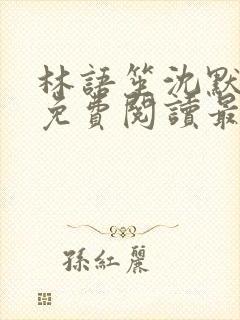 林語笙沈默
免費閱讀最
孫紅麗